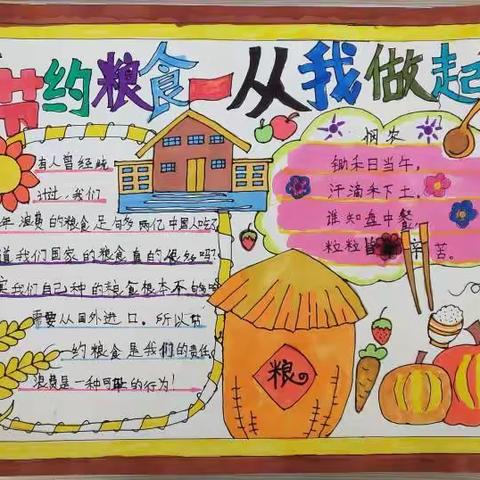 节约粮食 从我做起
有人曾经统
计过，我们
年浪费的粮食足有多两亿中国人吃了
道我们国家的粮食真的很多吗?
实我们自己种的粮食根本不够吃
需要从国外进口。所以节
约粮食是我们的责任
浪费是一种可耻的行为!
悯农
锄禾日当午，
汗滴禾下土。
谁知盘中餐，
粒粒皆辛苦。
粮